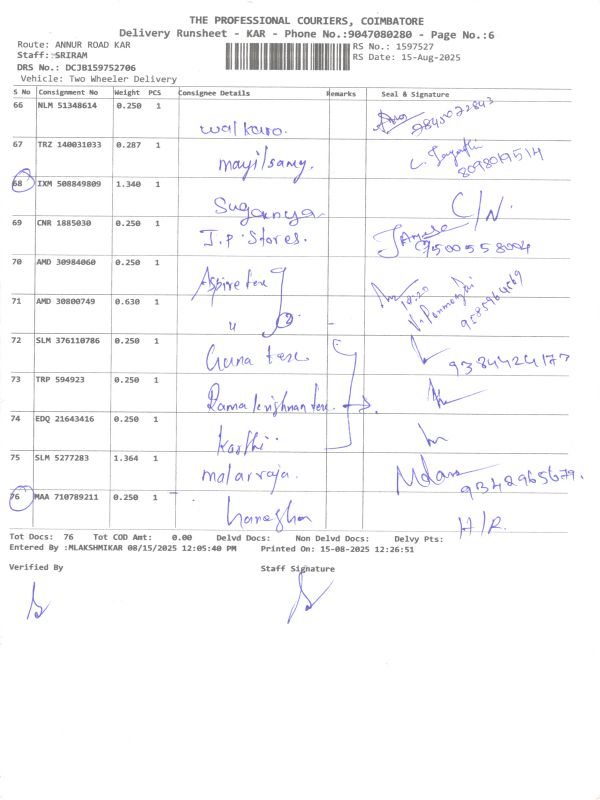 THE PROFESSIONAL COURIERS, COIMBATORE
Delivery Runsheet - KAR - Phone No.:9047080280 - Page No.:6
Route: ANNUR ROAD KAR RS No.: 1597527
Staff: SRIRAM RS Date: 15-Aug-2025
DRS No.: DCJB159752706
Vehicle: Two Wheeler Delivery
S No Consignment No Weight PCS Consignee Details Remarks Seal & Signature
66 NLM 51348614 0.250 1 walkaro. 9845022843
67 TRZ 140031033 0.287 1 mayilsamy.
68 IXM 508849809 1.340 1 Suganya C/N.
69 CNR 1885030 0.250 1 J.P. Stores. 7500558004
70 AMD 30984060 0.250 1 Aspire tex
71 AMD 30800749 0.630 1 u 2
72 SLM 376110786 0.250 1 Guna tex 9384424177
73 TRP 594923 0.250 1 Ramakrishnan tex
74 EDQ 21643416 0.250 1 Karthi
75 SLM 5277283 1.364 1 malarraja. 9342965679.
76 MAA 710789211 0.250 1 H/R.
Tot Docs: 76 Tot COD Amt: 0.00 Delvd Docs: Non Delvd Docs: Delvy Pts:
Entered By :MLAKSHMIKAR 08/15/2025 12:05:40 PM Printed On: 15-08-2025 12:26:51
Verified By Staff Signature